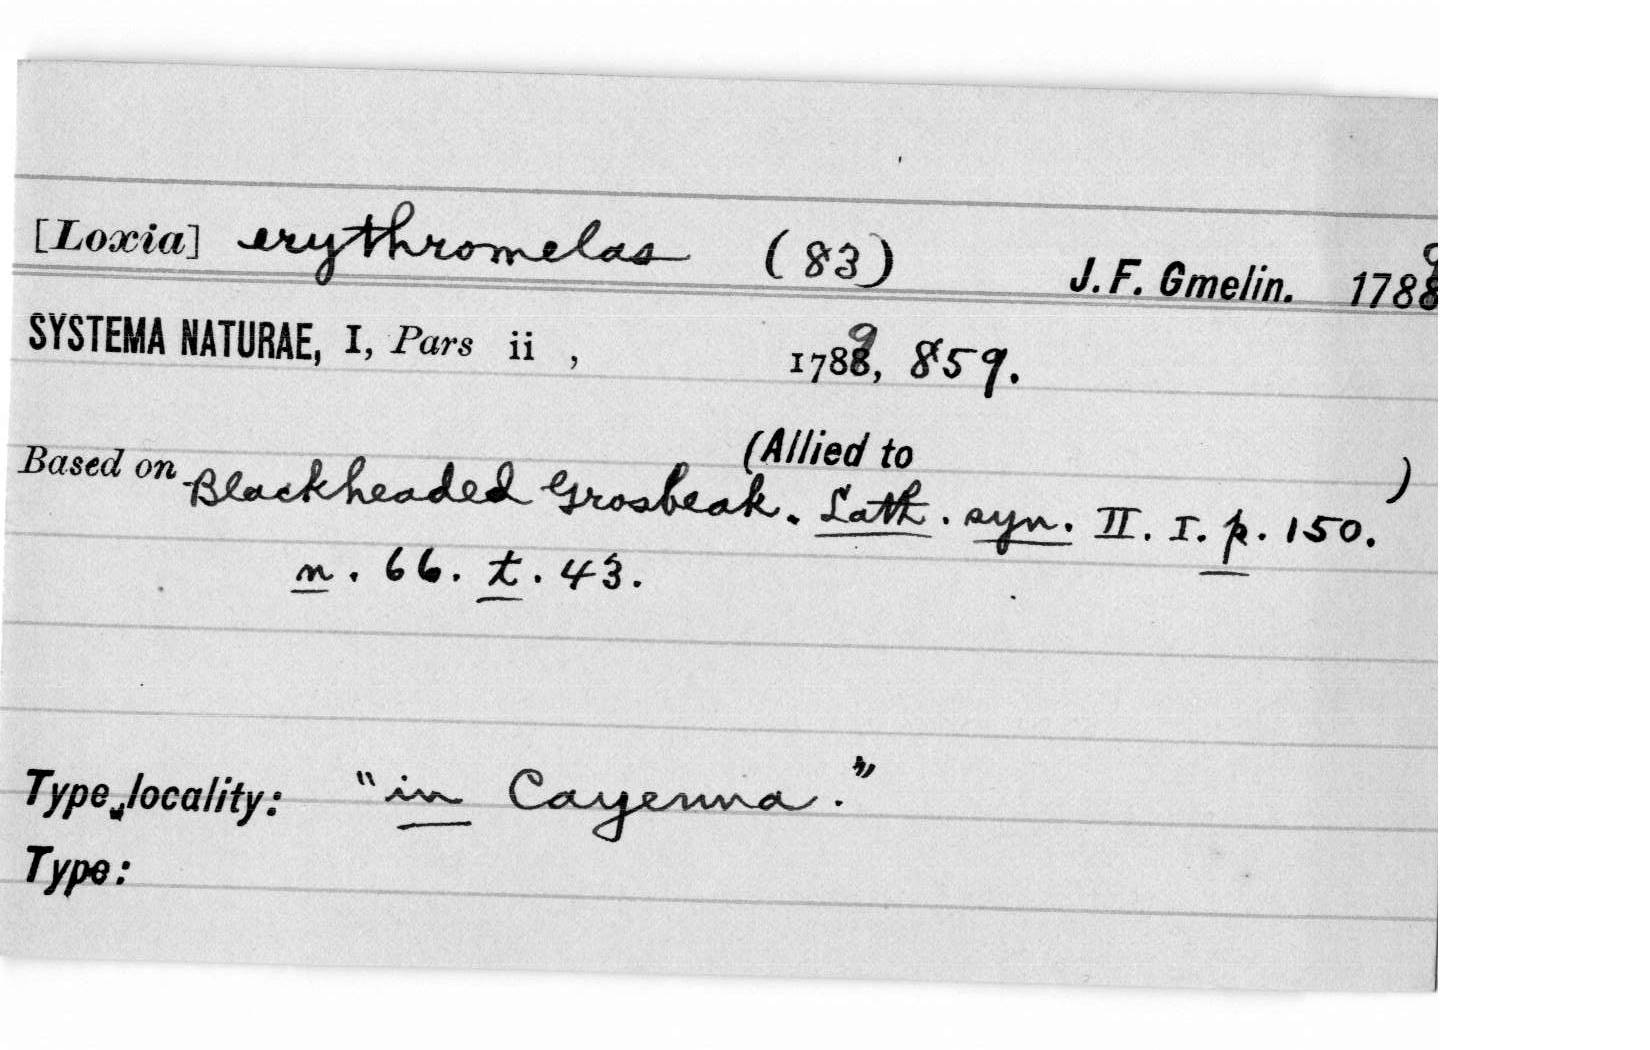 [Loxia] erythromelas (83) J. F. Gmelin. 1789
SYSTEMA NATURAE, I, Pars ii , 1789, 859.
(Allied to )
Based on Blackheaded Grosbeak. Lath. syn. II. I. p. 150.
n. 66. t. 43.
Type locality: "in Cayenna."
Type: